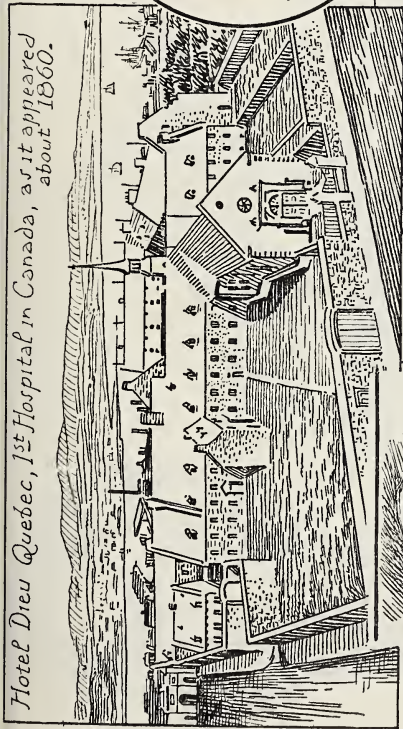 Hotel Dieu Quebec, 1st Hospital in Canada, as it appeared
about 1860.